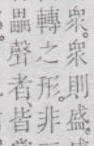 衆。衆則盛。
轉之形。非
聲者。皆